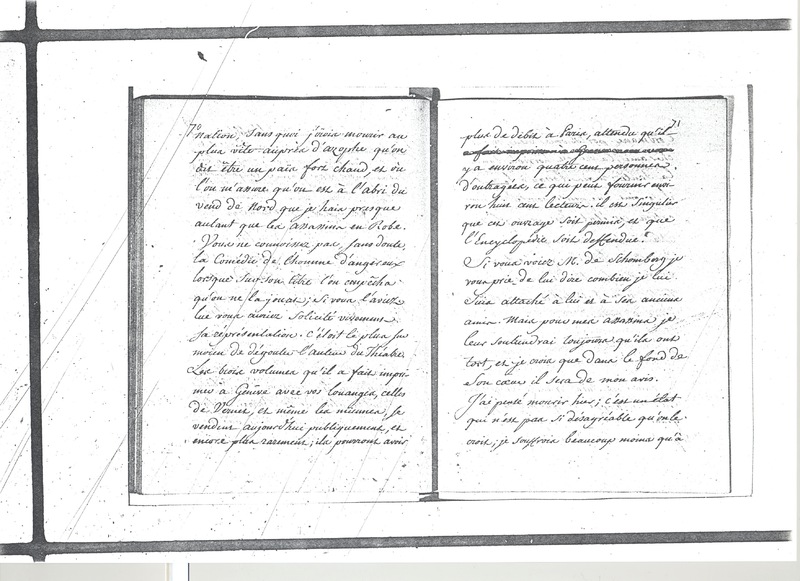 70
nation, sans quoi j'irois mourir au
plus vîte auprès d'azophe qu'on
dit être un païs fort chaud et où
l'on m'assure qu'on est à l'abri du
vend de Nord que je hais presque
autant que les assassins en Robe.
Vous ne connoissez pas, sans doute
la Comédie de l'homme dangéreux
lorsque sur son titre l'on empêcha
qu'on ne la jouat; si vous l'aviez
lue vous auriez solicité vivement
sa réprésentation. c'étoit le plus sur
moïen de dégouter l'auteur du Théatre
Les trois volumes qu'il a fait impri-
més à Genêve avec vos louanges, celles
de Vernet, et même les miennes, se
vendent aujourd'hui publiquement, et
encore plus rarement; ils pourront avoir
71
plus de débit à Paris, attendu qu'il
y a environ quatre cent personnes
d'outragées, ce qui peut fournir envi-
ron huit cent lecteurs. il est singulier
que cet ouvrage soit permis, et que
l'Encyclopédie soit deffendue.
Si vous voïez M. de Schomberg je
vous prie de lui dire combien je lui
suis attaché à lui et à ses anciens
amis. Mais pour mes assassins je
leur soutiendrai toujours qu'ils ont
tort, et je crois que dans le fond de
son cœur il sera de mon avis.
J'ai pensé mourir hier; c'est un état
qui n'est pas si désagréable qu'on le
croit; je souffrois beaucoup moins qu'à